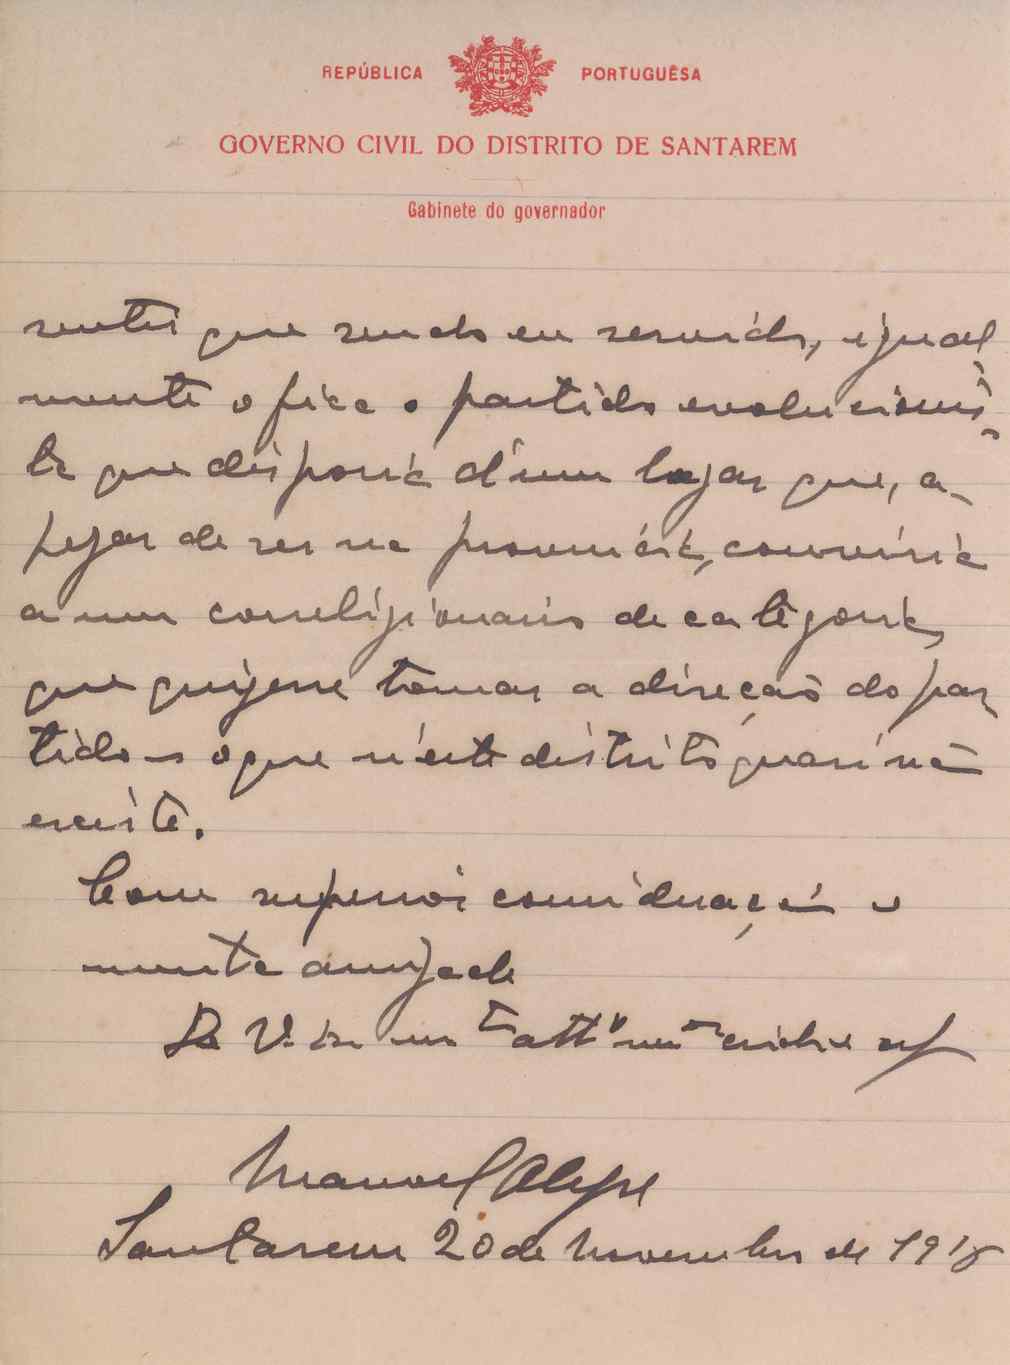 REPÚBLICA PORTUGUÊSA
GOVERNO CIVIL DO DISTRITO DE SANTAREM
Gabinete do governador
sentir que sendo eu servido, igual
mente o fica o partido evolucionis-
ta que disporia d'um logar que, a-
pezar de ser na provincia, conviria
a um correligionario de categoria,
que quizesse tomar a direcção do par
tido - o que n'este distrito quasi não
existe.
Com superior consideração e
muita amizade
De V. Ex. m.to att.o
Manoel Alegre
Santarem 20 de Novembro de 191